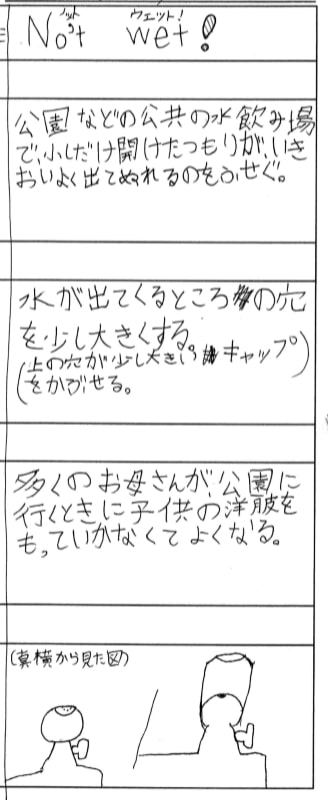 ノット ウェット!
Not wet!
公園などの公共の水飲み場
で、少しだけ開けたつもりが、いき
おいよく出てぬれるのをふせぐ。
水が出てくるところの穴
を少し大きくする。
(上の穴が少し大きいキャップ
をかぶせる。)
多くのお母さんが、公園に
行くときに子供の洋服を
もっていかなくてよくなる。
(真横から見た図)